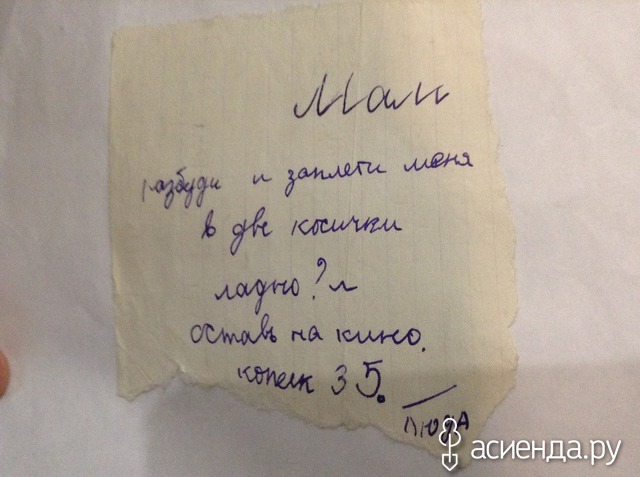 Мам
разбуди и заплети меня
в две косички
ладно? л
оставь на кино.
копеек 35.
Люда
асиенда.ру